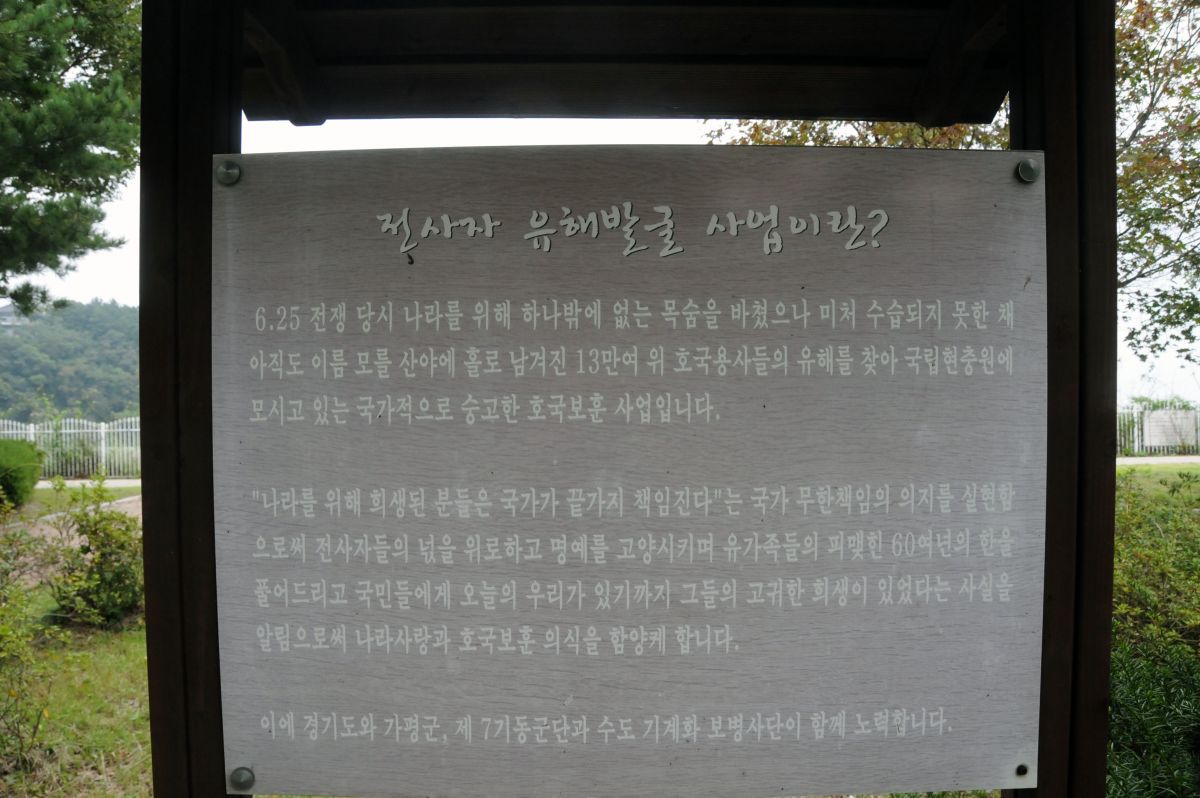 전사자 유해발굴 사업이란?
6.25 전쟁 당시 나라를 위해 하나밖에 없는 목숨을 바쳤으나 미처 수습되지 못한 채
아직도 이름 모를 산야에 홀로 남겨진 13만여 위 호국용사들의 유해를 찾아 국립현충원에
모시고 있는 국가적으로 숭고한 호국보훈 사업입니다.
"나라를 위해 희생된 분들은 국가가 끝가지 책임진다"는 국가 무한책임의 의지를 실현함
으로써 전사자들의 넋을 위로하고 명예를 고양시키며 유가족들의 피맺힌 60여년의 한을
풀어드리고 국민들에게 오늘의 우리가 있기까지 그들의 고귀한 희생이 있었다는 사실을
알림으로써 나라사랑과 호국보훈 의식을 함양케 합니다.
이에 경기도와 가평군, 제 7기동군단과 수도 기계화 보병사단이 함께 노력합니다.